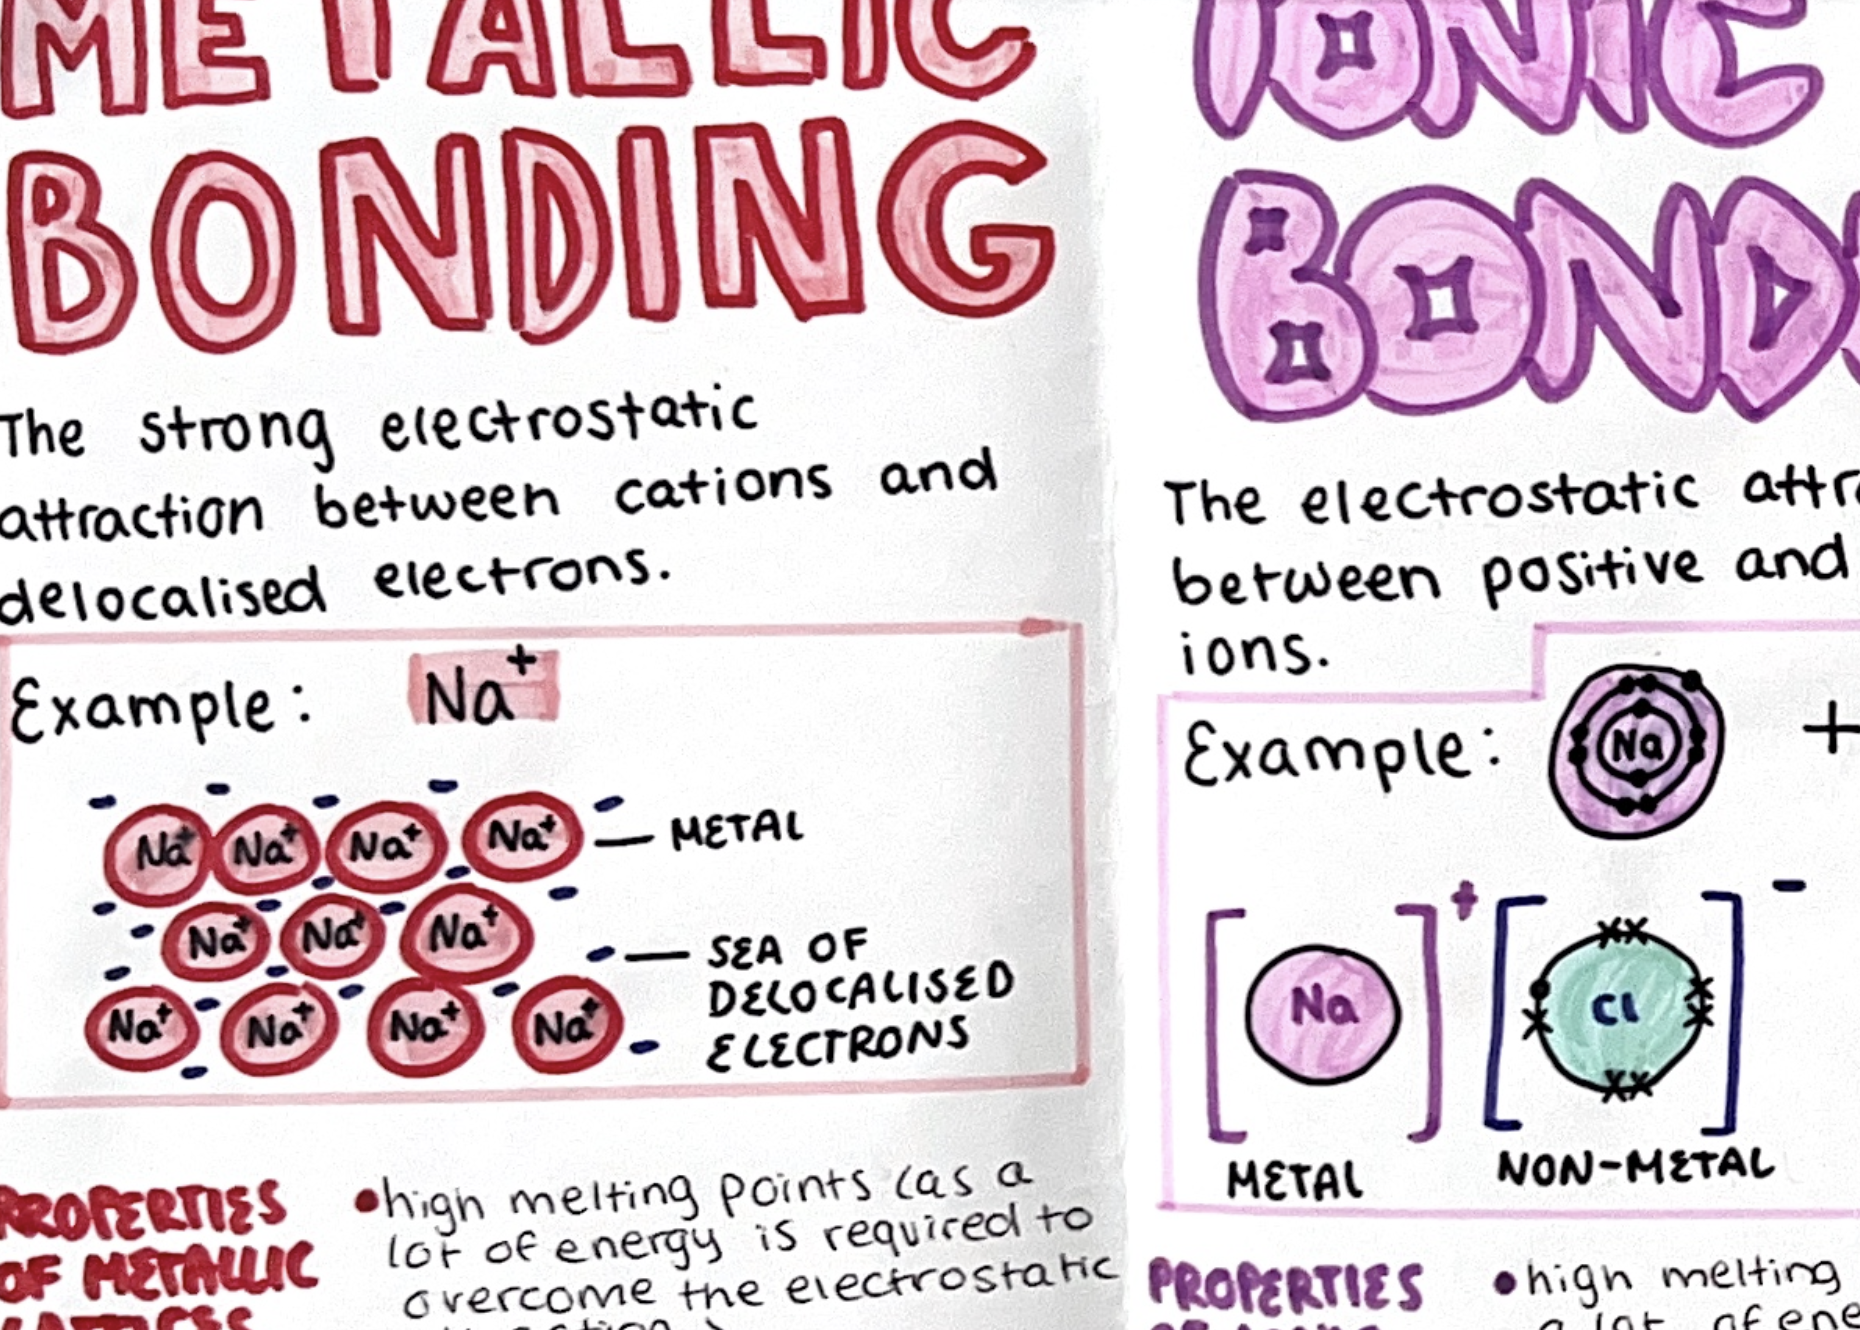 METALLIC
BONDING
The strong electrostatic
attraction between cations and
delocalised electrons.
Example: Na⁺
Na⁺ Na⁺ Na⁺ Na⁺ — METAL
Na⁺ Na⁺ Na⁺ — SEA OF
DELOCALISED
ELECTRONS
Na⁺ Na⁺ Na⁺ Na⁺
PROPERTIES
OF METALLIC
LATTICES
•high melting points (as a
lot of energy is required to
overcome the electrostatic
IONIC
BOND
The electrostatic
between positive and
ions.
Example: Na +
[Na]⁺ [Cl]⁻
METAL NON-METAL
PROPERTIES
•high melting
a lot of